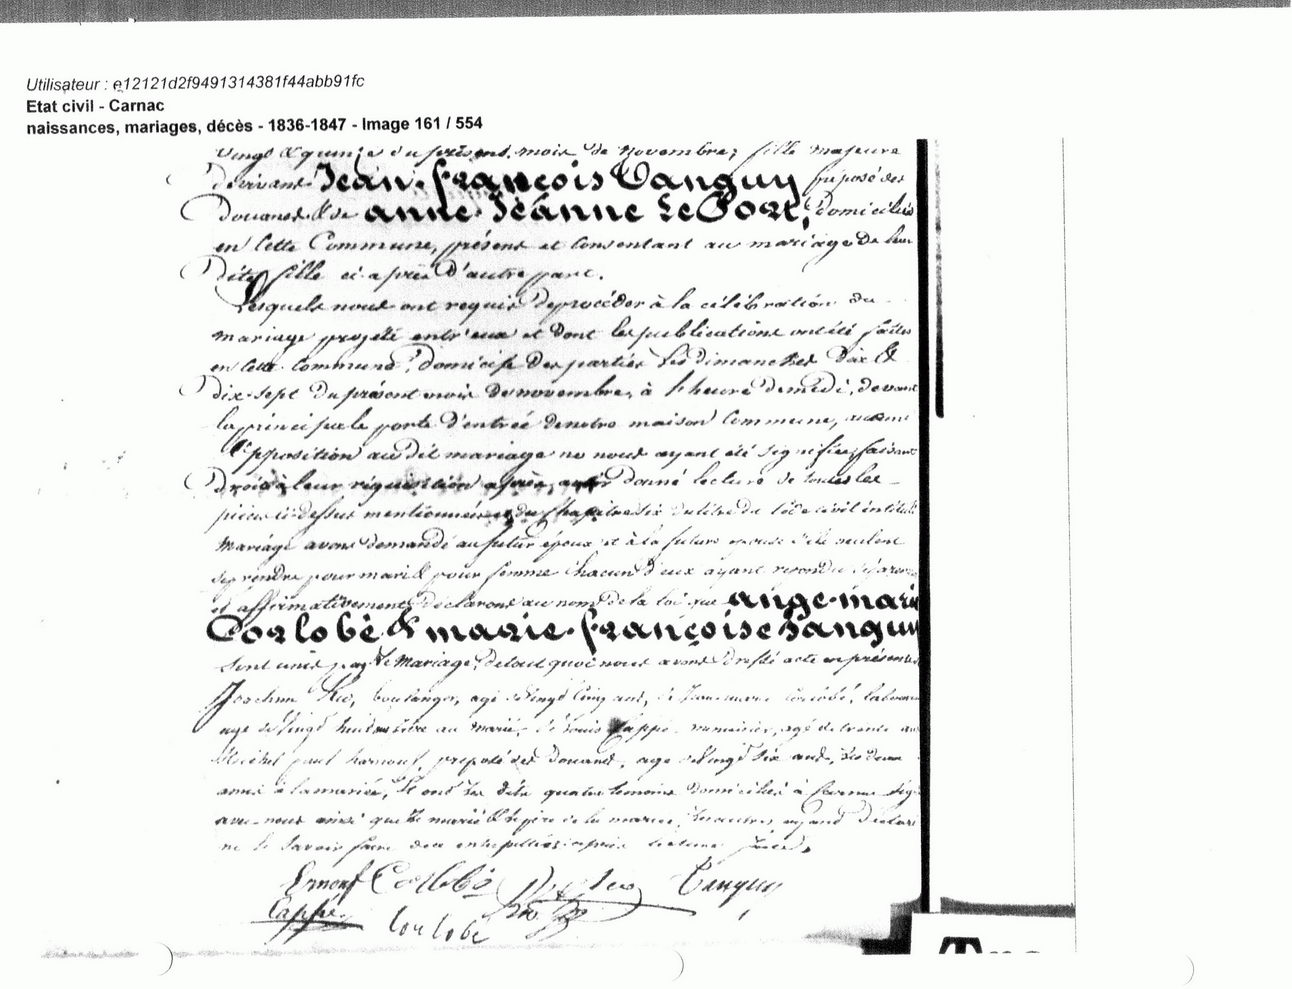 Utilisateur : e12121d2f9491314381f44abb91fc
Etat civil - Carnac
naissances, mariages, décès - 1836-1847 - Image 161 / 554
vingt & quinze du présent mois de novembre, fille majeure
Jean françois Tanguy préposé des
Douanes & de anne Jeanne Le Port, domiciliés
en Cette Commune, présens et consentant au mariage de leur
Dite fille ci après D'autre part.
Lesquels nous ont requis De procéder à la célébration du
mariage projetté entr'eux et dont les publications ont été faites
en Cette Commune, domicile Des parties Les Dimanches Dix &
dix-sept Du présent mois De novembre, à l'heure De midi, devant
la principale porte d'entrée de notre maison Commune, aucune
Opposition au dit mariage ne nous ayant été signifiée, faisant
Droit à leur réquisition après avoir donné lecture de toutes les
pièces ci-dessus mentionnées et du Chapitre six du titre du Code civil intitulé
mariage avons demandé au futur époux et à la future épouse s'ils veulent
se prendre pour mari & pour femme chacun d'eux ayant répondu
et affirmativement, déclarons au nom de la loi que ange marie
Corlobé & marie françoise Tanguy
Sont unis par Le mariage, de tout quoi nous avons Dressé acte en présence
boulanger, agé de vingt cinq ans,
age de vingt huit au marié, de Louis Cappé menuisier, agé de trente ans
préposé des Douanes, agé de vingt six ans, Les deux
amis à la mariée, quatre témoins domiciliés à Carnac
avec nous ainsi que le marié & le père de la mariée, Les autres ayant déclaré
ne le Savoir faire après lecture
Corlobé Tanguy
Cappé Corlobé